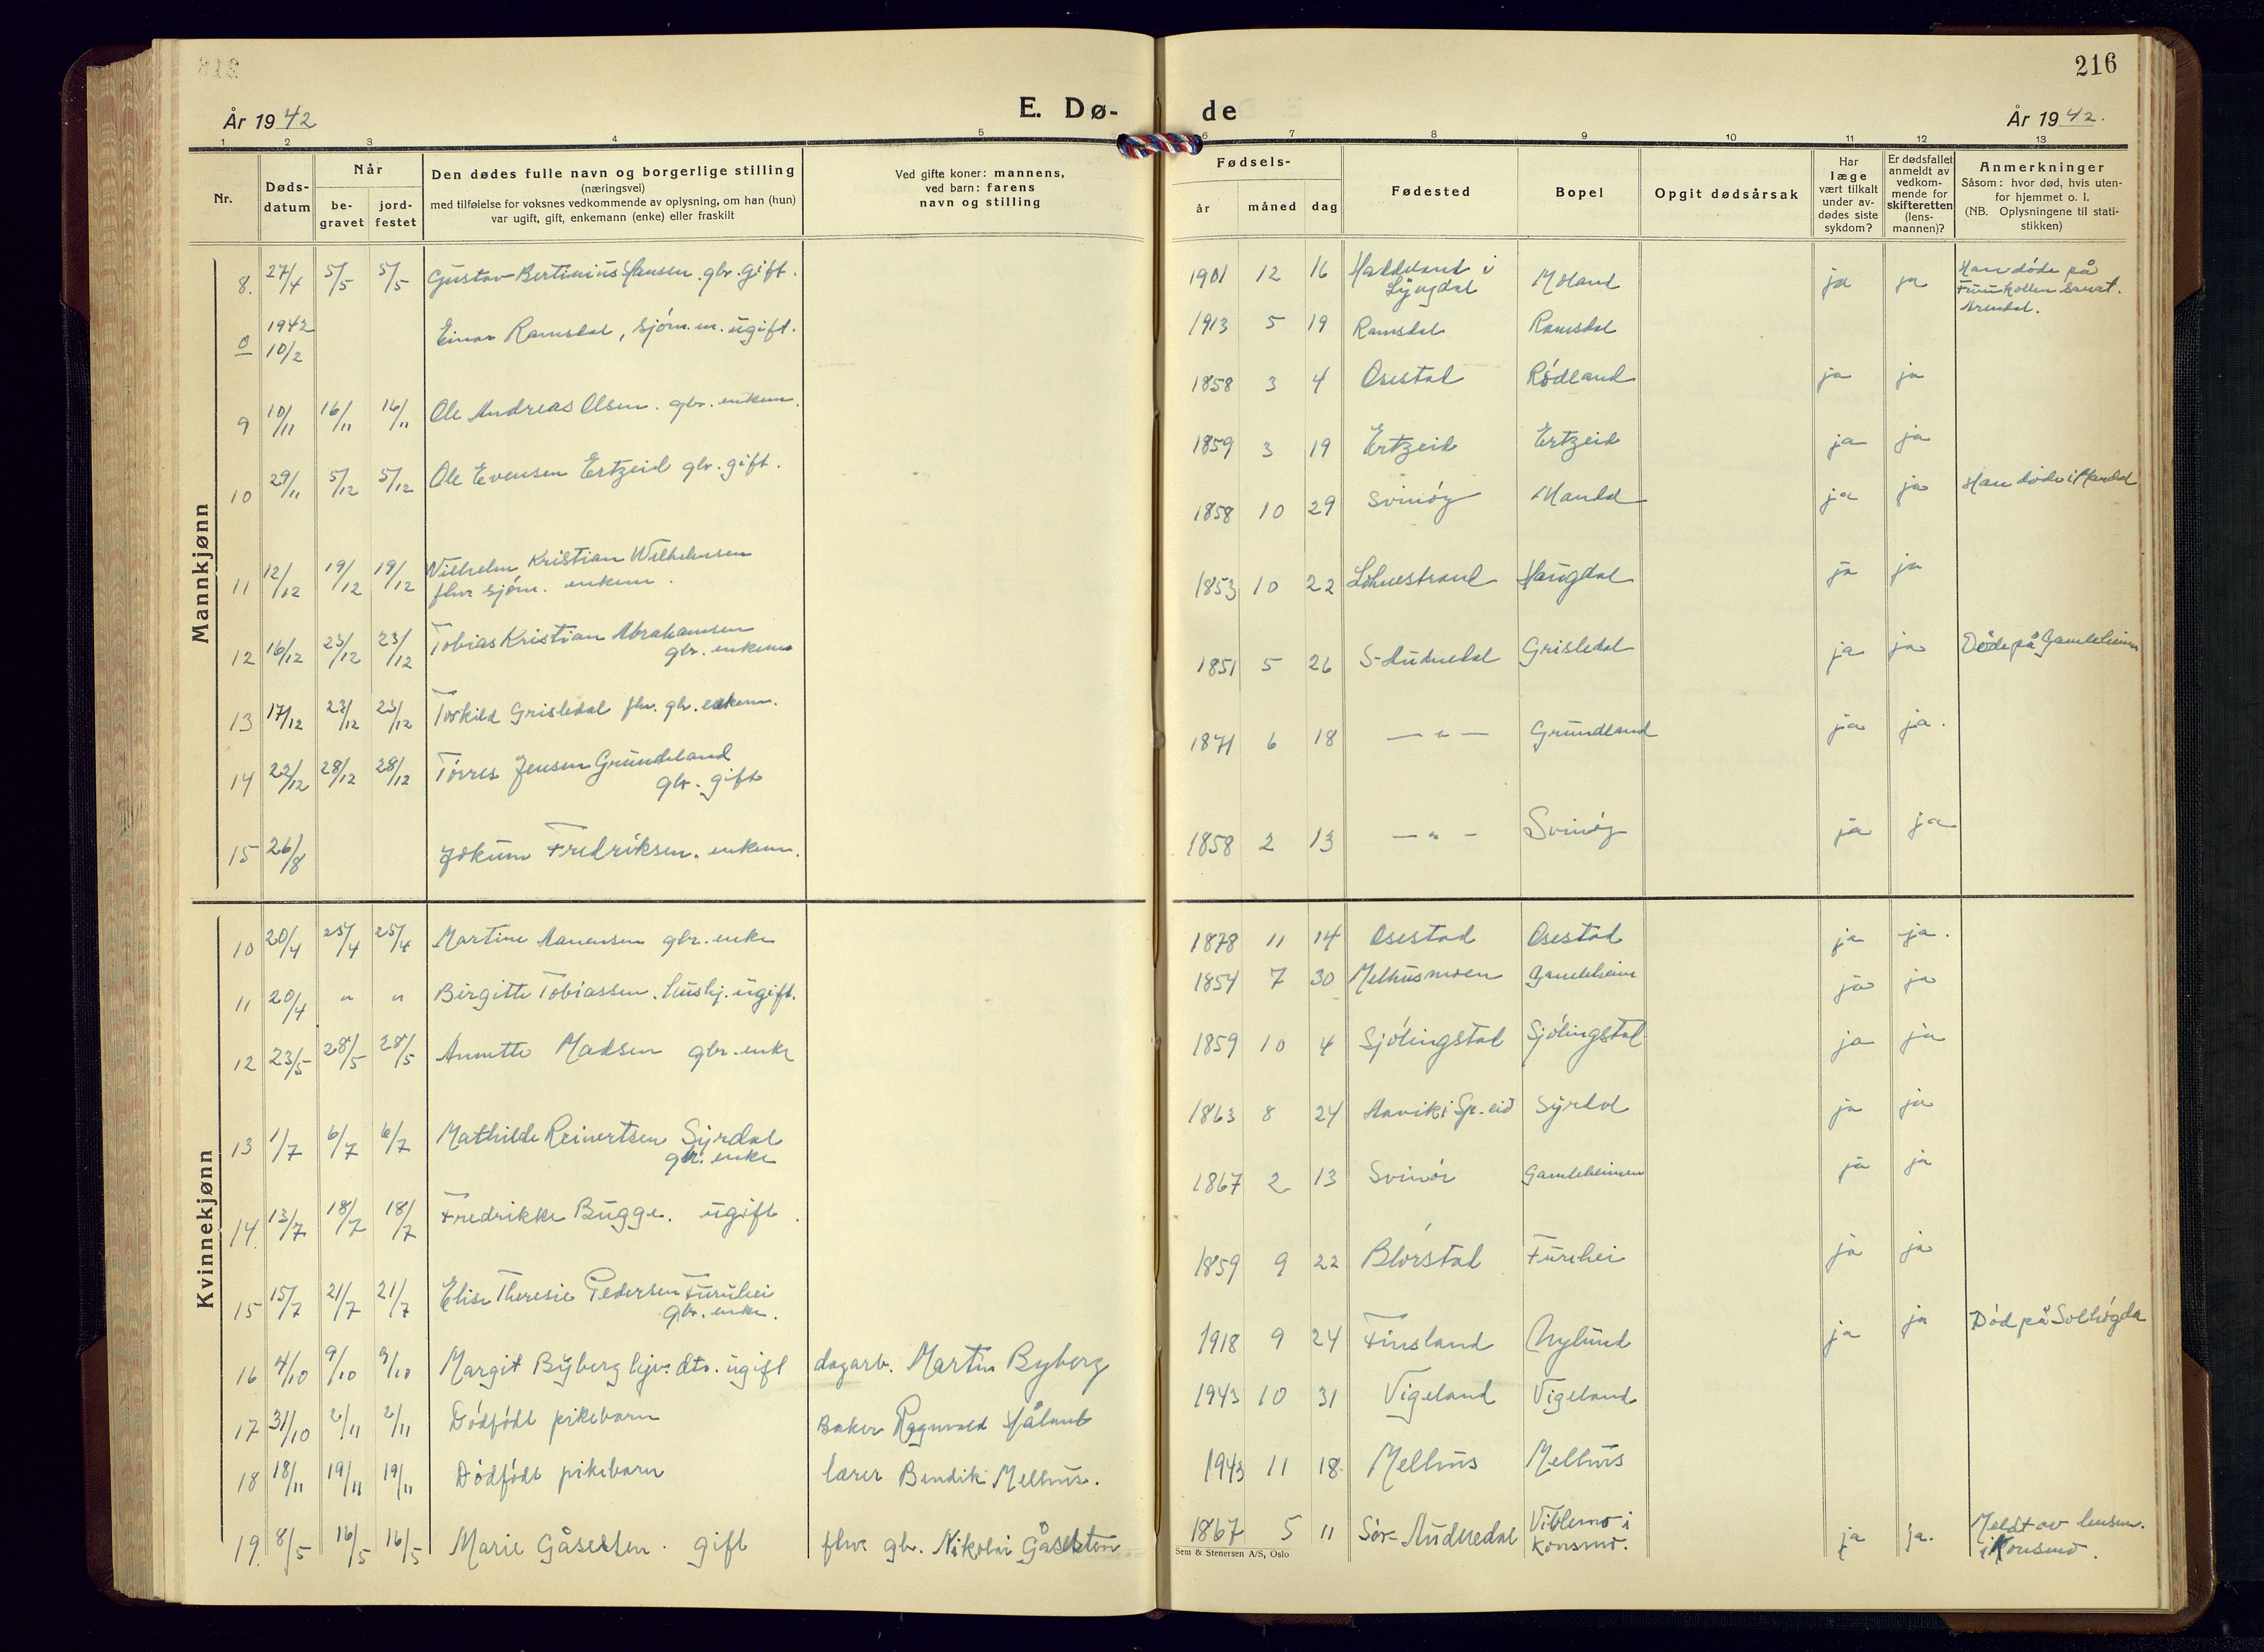 216
År 1942
E. Dø-
de
År 1942.
1 2 3 4 5 6 7 8 9 10 11 12 13
Nr.
Døds-
datum
Når
be-
gravet
jord-
festet
Den dødes fulle navn og borgerlige stilling
(næringsvei)
med tilføielse for voksnes vedkommende av oplysning, om han (hun)
var ugift, gift, enkemann (enke) eller fraskilt
Ved gifte koner: mannens,
ved barn: farens
navn og stilling
Fødsels-
år
måned
dag
Fødested
Bopel
Opgit dødsårsak
Har
læge
vært tilkalt
under av-
dødes siste
sykdom?
Er dødsfallet
anmeldt av
vedkom-
mende for
skifteretten
(lens-
mannen)?
Anmerkninger
Såsom: hvor død, hvis uten-
for hjemmet o. l.
(NB. Oplysningene til stati-
stikken)
Mannkjønn
8. 27/4 5/5 5/5 Gustav Bertinius Hansen. gbr. gift. 1901 12 16 i Lyngdal Moland ja ja Han døde på sanat. Arendal.
0 1942 10/2 Einar Ramsdal, sjøm. m. ugift. 1913 5 19 Ramsdal Ramsdal
9 10/11 16/11 16/11 Ole Andreas Olsen. gbr. enkem. 1858 3 4 Osestad Rødland ja ja
10 29/11 5/12 5/12 Ole Evensen Ertzeid gbr. gift. 1859 3 19 Ertzeid Ertzeid ja ja
11 12/12 19/12 19/12 Vilhelm Kristian Wilhelmsen
fhv sjøm. enkem. 1858 10 29 Svinøy Mandal ja ja Han døde i Mandal
12 16/12 23/12 23/12 Tobias Kristian Abrahamsen
gbr. enkem 1853 10 22 Lohnestrand Haugdal ja ja
13 17/12 23/12 23/12 Torkild Grisledal fhv. gbr. enkem. 1851 5 26 S-Audnedal Grisledal ja ja Døde på Gamleheim
14 22/12 28/12 28/12 Tørres Jensen Grundeland
gbr. gift 1871 6 18 — " — Grundland ja ja.
15 26/8 Jokum Fredriksen. enkem. 1858 2 13 — " — Svinøy ja ja
Kvinnekjønn
10 20/4 25/4 25/4 Martine Aanensen gbr. enke 1878 11 14 Osestad Osestad ja ja.
11 20/4 " " Birgitte Tobiassen. hushj. ugift. 1854 7 30 Melhusmoen Gamleheim ja ja
12 23/5 28/5 28/5 Annette Madsen gbr. enke 1859 10 4 Sjølingstad Sjølingstad ja ja
13 1/7 6/7 6/7 Mathilde Reinertsen Syrdal
gbr. enke 1863 8 24 Aavik i Sp.eid Syrdal ja ja
14. 13/7 18/7 18/7 Fredrikke Bugge. ugift. 1867 2 13 Svinør Gamleheimen ja ja
15 15/7 21/7 21/7 Elise Theresie Pedersen Furuhei
gbr. enke. 1859 9 22 Blørstad Furuhei ja ja
16 4/10 9/10 9/10 Margit Byberg hjv. dtr. ugift dagarb. Martin Byberg 1918 9 24 Finsland Nylund ja ja Død på Solhøgda
17 31/10 2/11 2/11 Dødfødt pikebarn Baker Ragnvald Håland 1943 10 31 Vigeland Vigeland
18 18/11 19/11 19/11 Dødfødt pikebarn lærer Bendik Melhus. 1943 11 18 Melhus Melhus
19. 8/5 16/5 16/5 Marie Gåseslen. gift fhv. gbr. Nikolai 1867 5 11 Sør-Audnedal Viblemo i
Konsmo. ja ja. Meldt av lensm.
i Konsmo.
Sem & Stenersen A/S, Oslo